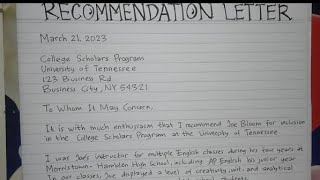 RECOMMENDATION LETTER
March 21, 2023
College Scholars Program
University of Tennessee
123 Business Rd
Business City, NY 54321
To Whom It May Concern,
It is with much enthusiasm that I recommend Joe Bloom for inclusion
in the College Scholars Program at the University of Tennessee
I was Joe's instructor for multiple English classes during his four years at
Morristown-Hamblen High School, including AP English his junior year.
In our classes, Joe displayed a level of creativity, wit, and analytical